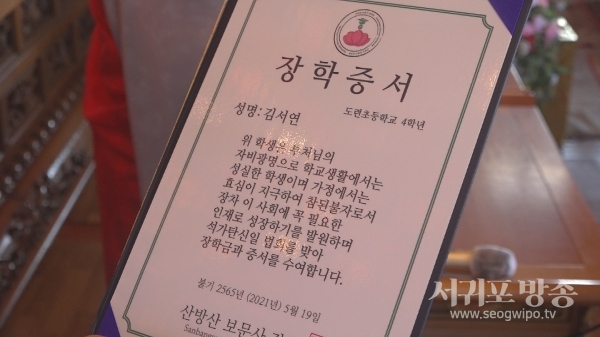 장학증서
성명:김서연
도련초등학교 4학년
위 학생은 부처님의
자비광명으로 학교생활에서는
성실한 학생이며 가정에서는
효심이 지극하여 참된불자로서
장차 이 사회에 꼭 필요한
인재로 성장하기를 발원하며
석가탄신일 법회를 맞아
장학금과 증서를 수여합니다.
불기 2565년 (2021년) 5월 19일
산방산 보문사
서귀포 방송
www.seogwipo.tv